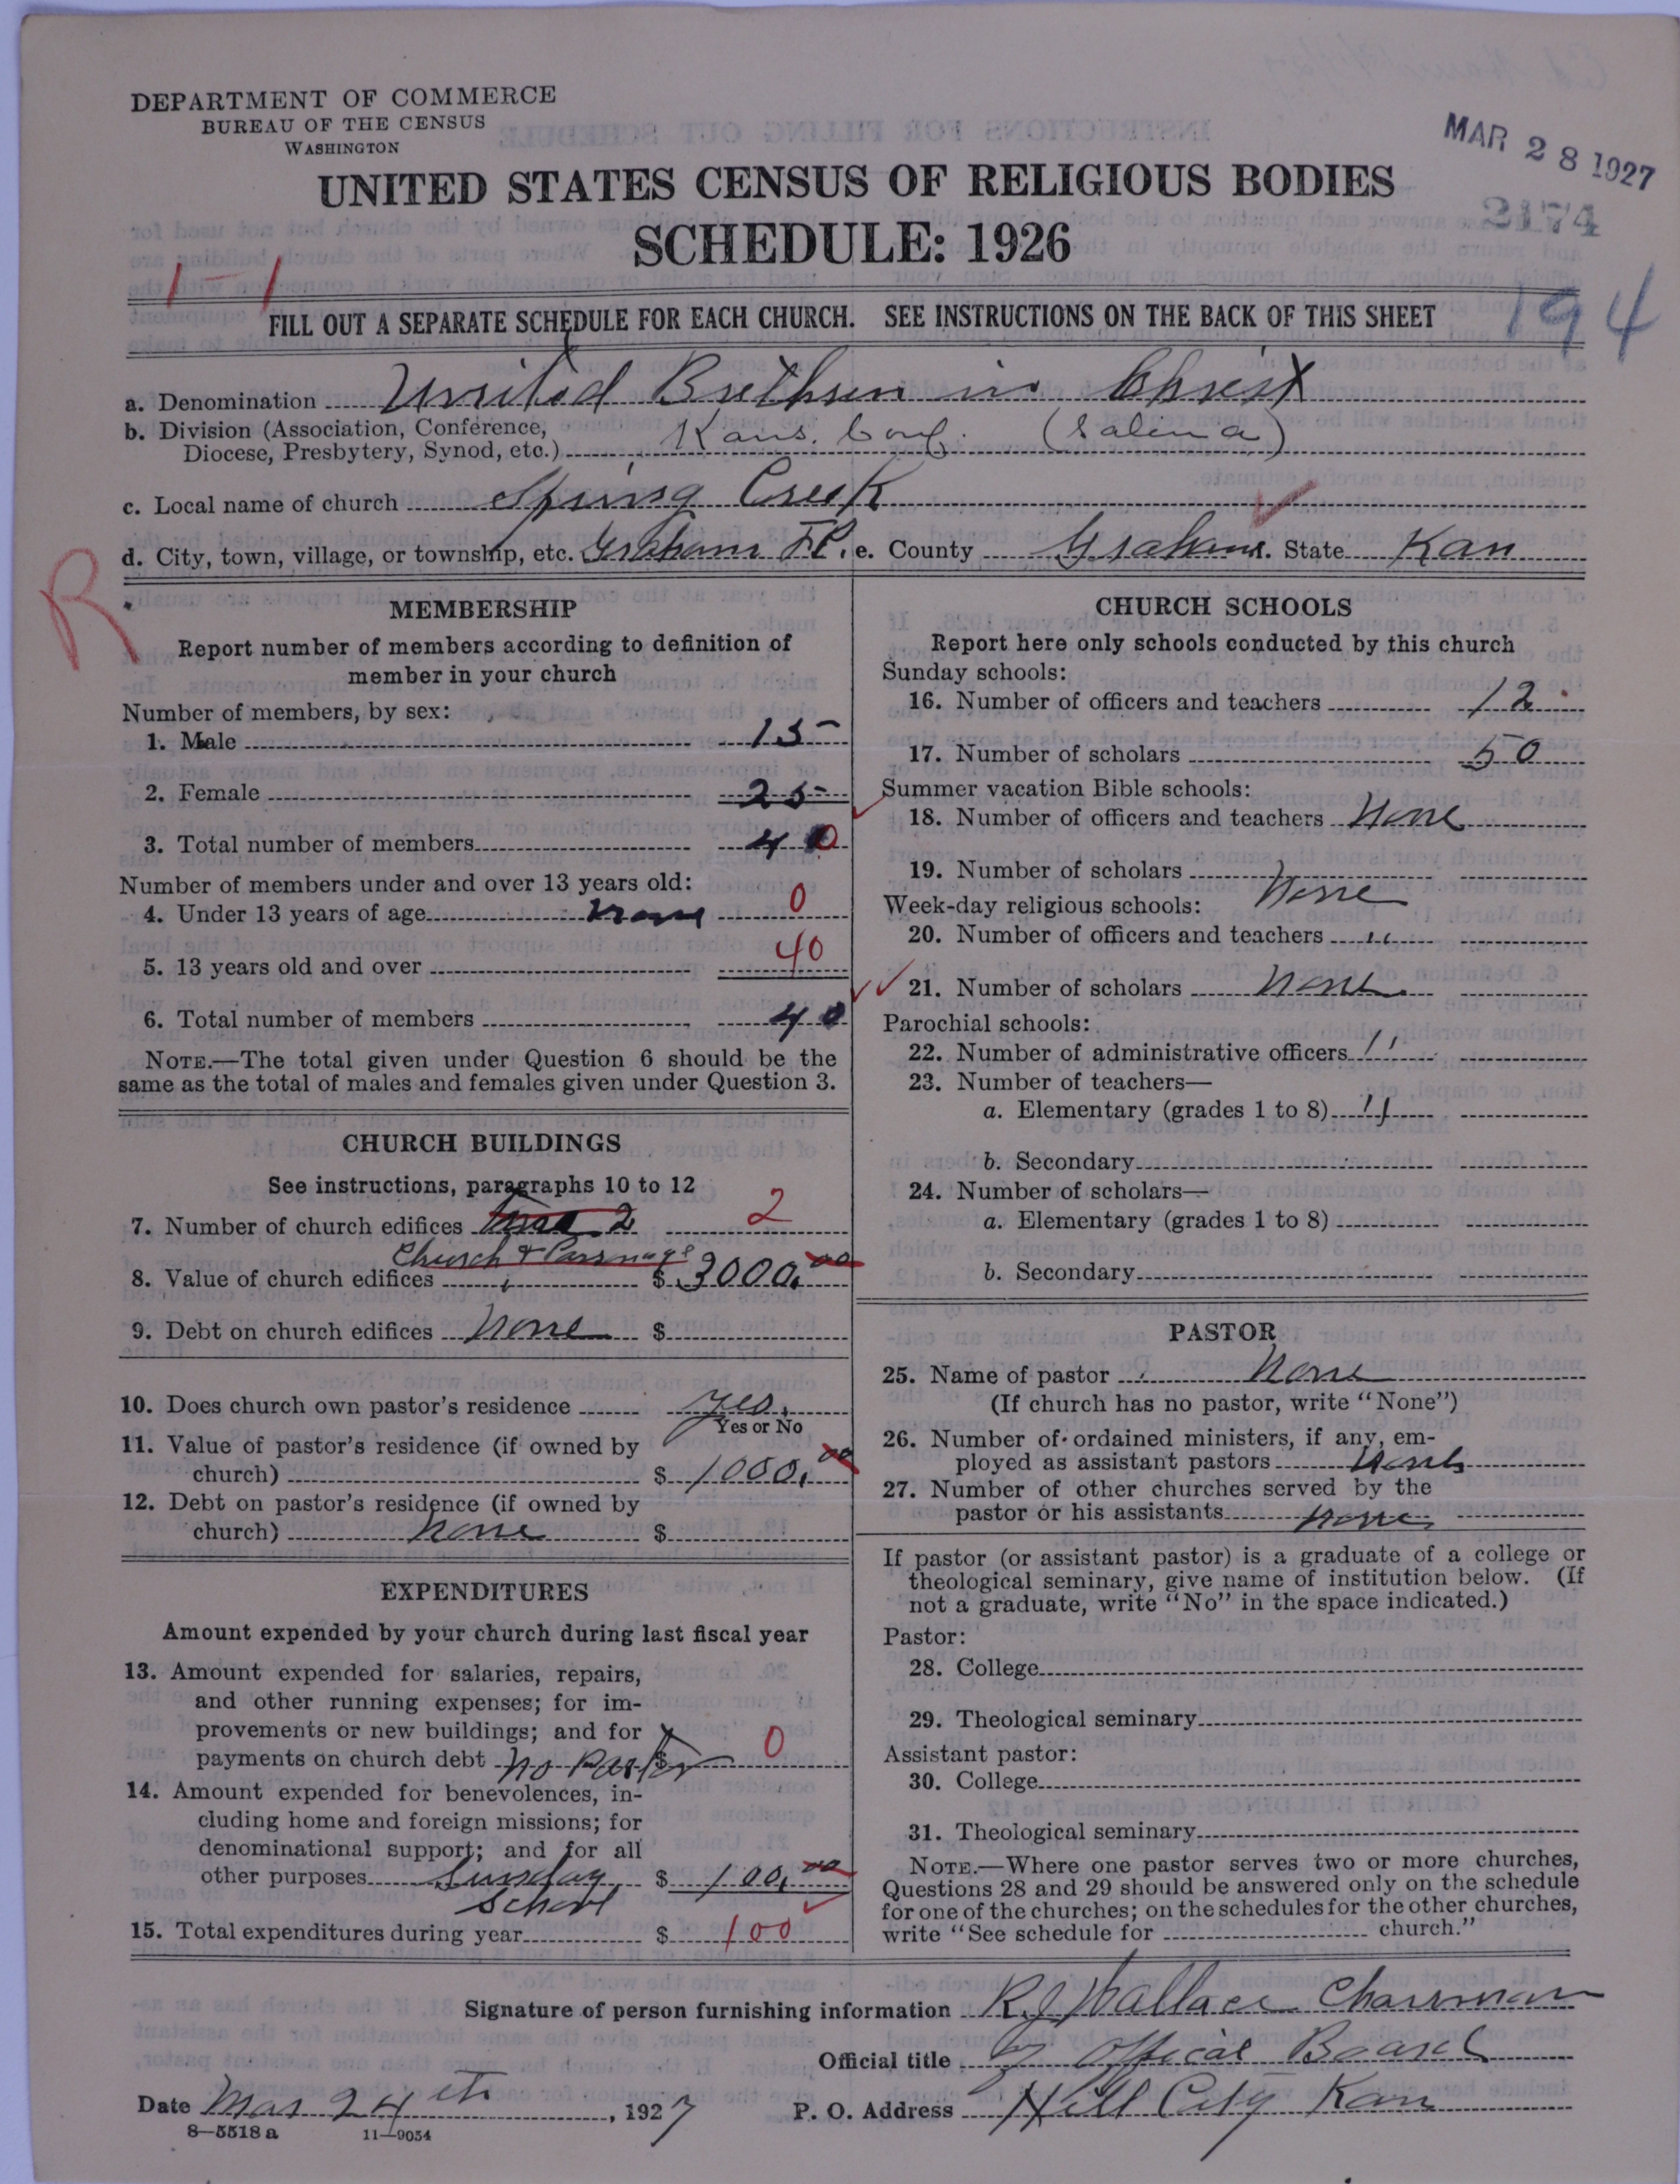 DEPARTMENT OF COMMERCE
BUREAU OF THE CENSUS
WASHINGTON
MAR 28 1927
2174
UNITED STATES CENSUS OF RELIGIOUS BODIES
SCHEDULE: 1926
1 - 1
194
FILL OUT A SEPARATE SCHEDULE FOR EACH CHURCH. SEE INSTRUCTIONS ON THE BACK OF THIS SHEET
a. Denomination United Brethren in Christ
b. Division (Association, Conference, Diocese, Presbytery, Synod, etc.) Kans. Conf. (Salina)
c. Local name of church Spring Creek
d. City, town, village, or township, etc. Graham T.P. e. County Graham. State Kan
R
MEMBERSHIP
Report number of members according to definition of
member in your church
Number of members, by sex:
1. Male 15
2. Female 25
3. Total number of members 40
Number of members under and over 13 years old:
4. Under 13 years of age none 0
5. 13 years old and over 40
6. Total number of members 40
NOTE.—The total given under Question 6 should be the
same as the total of males and females given under Question 3.
CHURCH BUILDINGS
See instructions, paragraphs 10 to 12
7. Number of church edifices 2 2
Church & Parsnage
8. Value of church edifices $ 3000.00
9. Debt on church edifices None $
10. Does church own pastor's residence yes.
Yes or No
11. Value of pastor's residence (if owned by
church) $ 1000.00
12. Debt on pastor's residence (if owned by
church) None $
EXPENDITURES
Amount expended by your church during last fiscal year
13. Amount expended for salaries, repairs,
and other running expenses; for im-
provements or new buildings; and for
payments on church debt no Pastor $ 0
14. Amount expended for benevolences, in-
cluding home and foreign missions; for
denominational support; and for all
other purposes Sunday $ 100.00
School
15. Total expenditures during year $ 100
CHURCH SCHOOLS
Report here only schools conducted by this church
Sunday schools:
16. Number of officers and teachers 12.
17. Number of scholars 50
Summer vacation Bible schools:
18. Number of officers and teachers None
19. Number of scholars None
Week-day religious schools:
20. Number of officers and teachers "
21. Number of scholars None
Parochial schools:
22. Number of administrative officers "
23. Number of teachers—
a. Elementary (grades 1 to 8) "
b. Secondary
24. Number of scholars—
a. Elementary (grades 1 to 8)
b. Secondary
PASTOR
25. Name of pastor None
(If church has no pastor, write "None")
26. Number of ordained ministers, if any, em-
ployed as assistant pastors None
27. Number of other churches served by the
pastor or his assistants None
If pastor (or assistant pastor) is a graduate of a college or
theological seminary, give name of institution below. (If
not a graduate, write "No" in the space indicated.)
Pastor:
28. College
29. Theological seminary
Assistant pastor:
30. College
31. Theological seminary
NOTE.—Where one pastor serves two or more churches,
Questions 28 and 29 should be answered only on the schedule
for one of the churches; on the schedules for the other churches,
write "See schedule for church."
Signature of person furnishing information R. J. Wallace Chairman
Official title of Offical Board
Date Mar 24th, 1927 P. O. Address Hill City Kan
8—5518a 11—9054